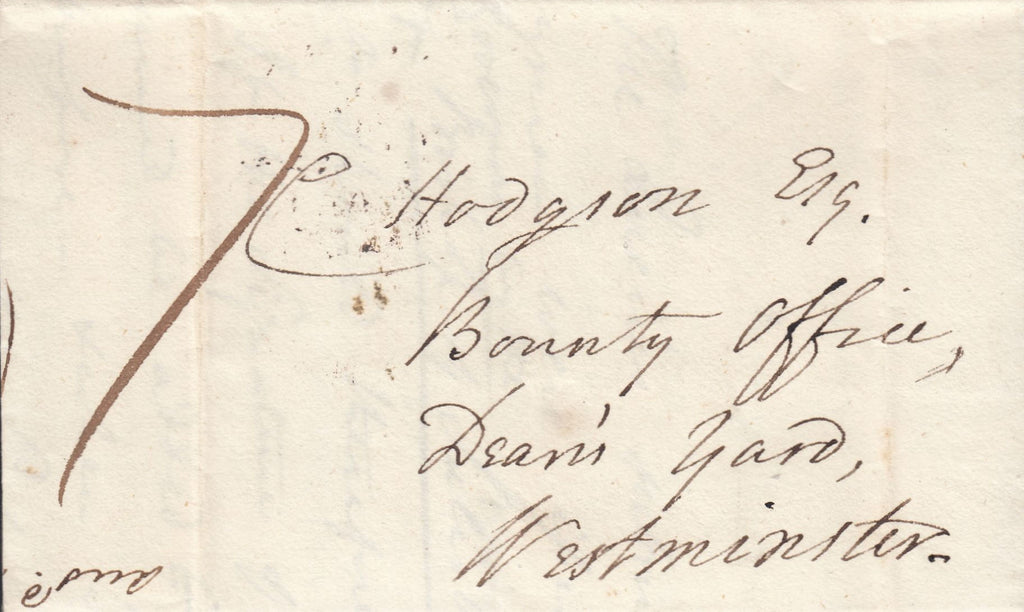 7
C Hodgson Esq.
Bounty Office,
Dean's Yard,
Westminster.